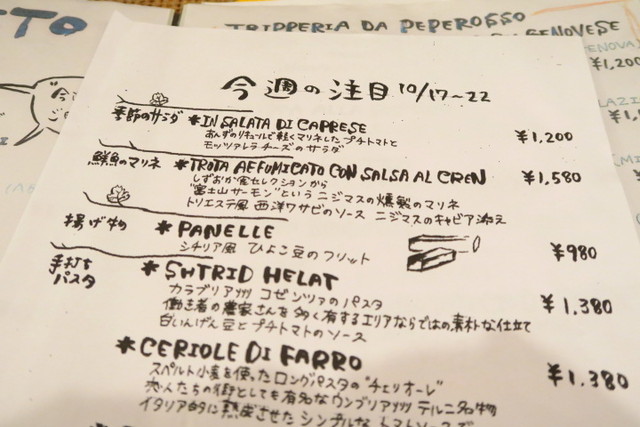 TTO
TRIPPERIA DA PEPEROSSO
GENOVESE
¥1,200
今週の注目 10/17~22
季節のサラダ *IN SALATA DI CAPRESE
あんずのリキュールで軽くマリネしたプチトマトと
モッツァレラチーズのサラダ
¥1,200
鮮魚のマリネ *TROTA AFFUMICATO CON SALSA AL CREN
しずおか食セレクションから
"富士山サーモン"という ニジマスの燻製のマリネ
トリエステ風 西洋ワサビのソース ニジマスのキャビア添え
¥1,580
揚げ物 *PANELLE
シチリア風 ひよこ豆のフリット
¥980
手打ちパスタ *SHTRID HELAT
カラブリア州 コゼンツァのパスタ
働き者の農家さんを多く有するエリアならではの素朴な仕立て
白いんげん豆とプチトマトのソース
¥1,380
*CERIOLE DI FARRO
スペルト小麦を使ったロングパスタの"チェリオーレ"
恋人たちの街としても有名なウンブリア州 テルニ名物
イタリア的に熟成させた シンプルな トマトソースで
¥1,380